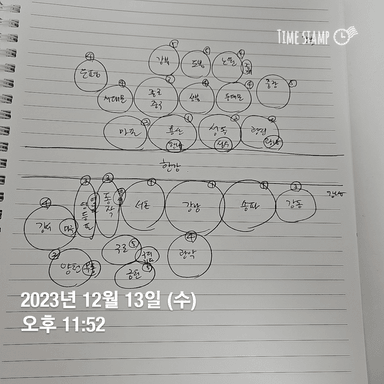 TIME STAMP
강북 도봉 노원
은평
중랑
서대문 종로 중구 성북 동대문
마포 용산 성동 광진
한남
성수
한강
영등포 동작
서초 강남 송파 강동
강서
마곡
구로 관악
양천 목동 금천
2023년 12월 13일 (수)
오후 11:52